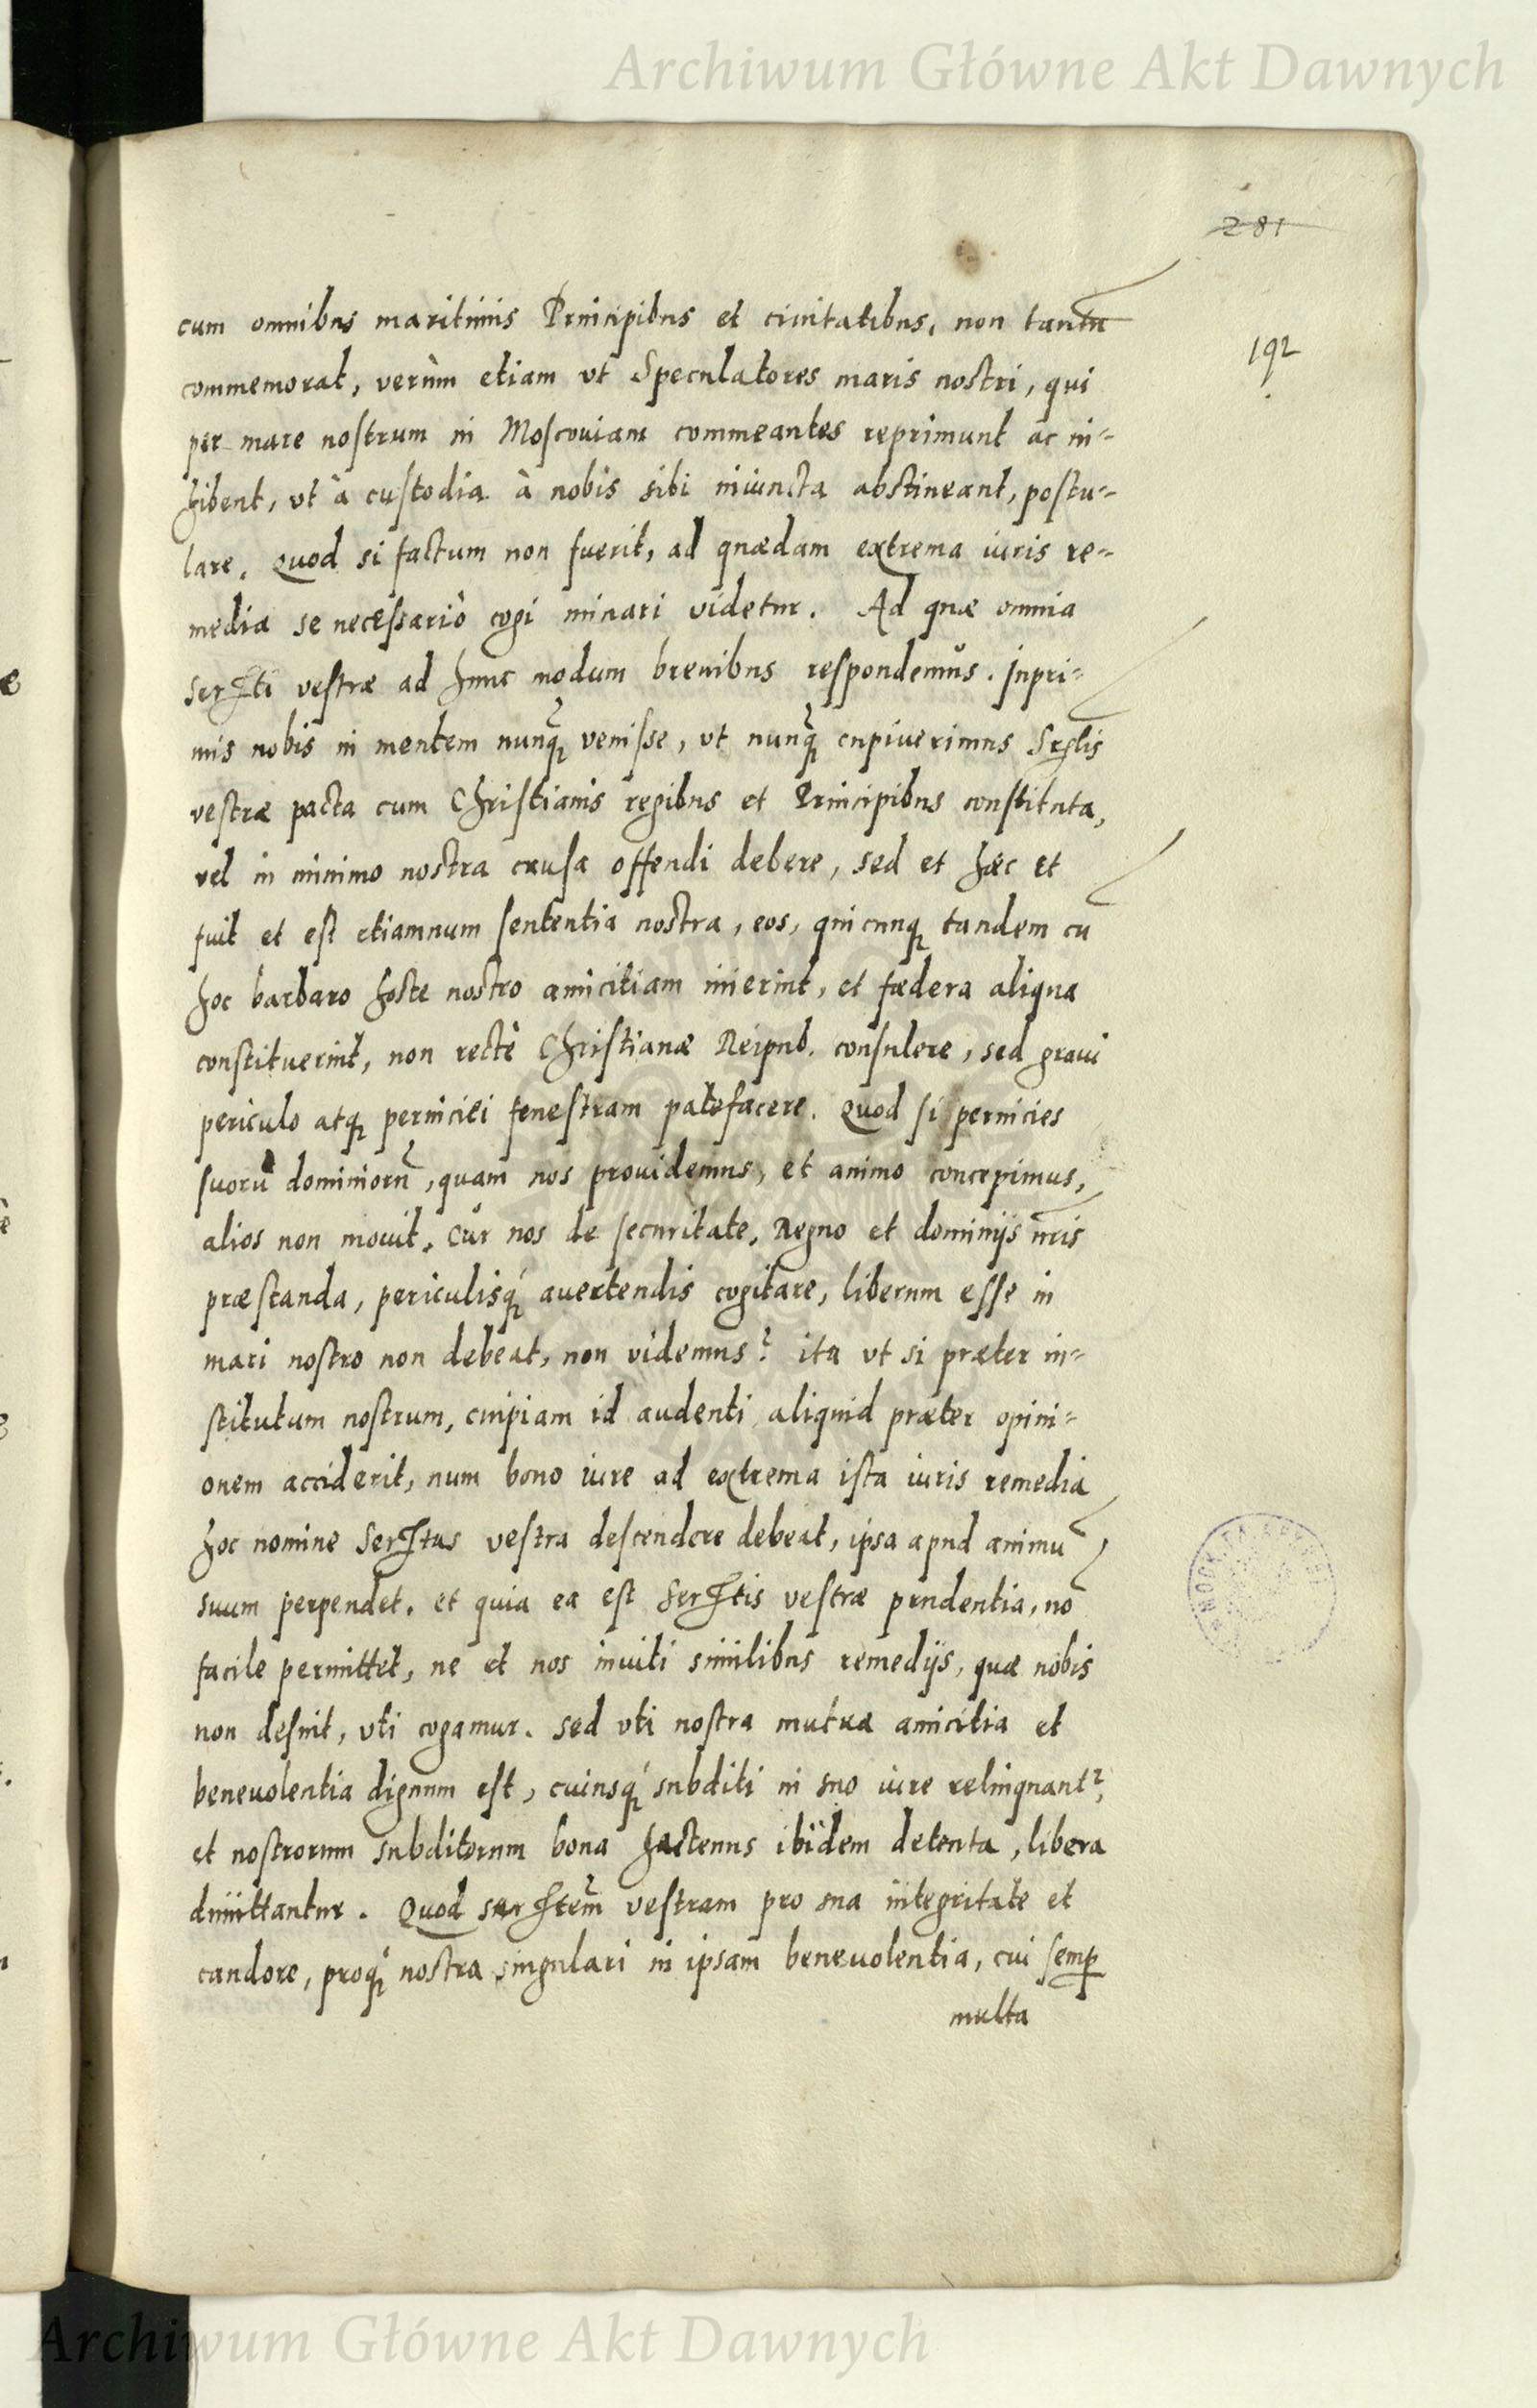 Archiwum Główne Akt Dawnych
281
192
cum omnibus maritimis Principibus et ciuitatibus, non tantũ
commemorat, verùm etiam vt Speculatores maris nostri, qui
per mare nostrum in Moscouiam commeantes reprimunt ac in=
hibent, vt à custodia à nobis sibi iniuncta abstineant, postu=
lare. Quod si factum non fuerit, ad quædam extrema iuris re=
media se necessariò cogi minari videtur. Ad quæ omnia
Serᵗⁱ vestræ ad hunc modum breuibus respondemus. Inpri=
mis nobis in mentem nunq̃ venisse, vt nunq̃ cupiuerimus Srtis
vestræ pacta cum Christianis regibus et Principibus constituta,
vel in minimo nostra causa offendi debere, sed et hæc et
fuit et est etiamnum sententia nostra, eos, quicunq tandem cũ
hoc barbaro hoste nostro amicitiam inierint, et fœdera aliqua
constituerint, non rectè Christianæ Reipub. consulere, sed graui
periculo atq perniciei fenestram patefacere. Quod si pernicies
suorũ dominiorũ, quam nos prouidemus, et animo concepimus,
alios non mouit. Cur nos de securitate, Regno et dominijs nr̃is
præstanda, periculisq́ auertendis cogitare, liberum esse in
mari nostro non debeat, non videmus? ita vt si præter in=
stitutum nostrum, cuipiam id audenti aliquid præter opini=
onem acciderit, num bono iure ad extrema ista iuris remedia
hoc nomine Serᵗᵃˢ vestra descendere debeat, ipsa apud animũ
suum perpendet. et quia ea est Serᵗⁱˢ vestræ prudentia, nõ
facile permittet, ne et nos inuiti similibus remedijs, quæ nobis
non desint, vti cogamur. Sed vti nostra mutua amicitia et
beneuolentia dignum est, cuiusq́ subditi in suo iure relinquantʳ,
et nostrorum subditorum bona hactenus ibidem detenta, libera
dimittantur. Quod Serᵗᵉᵐ vestram pro sua integritate et
candore, proq́ nostra singulari in ipsam beneuolentia, cui semp
multa
Archiwum Główne Akt Dawnych